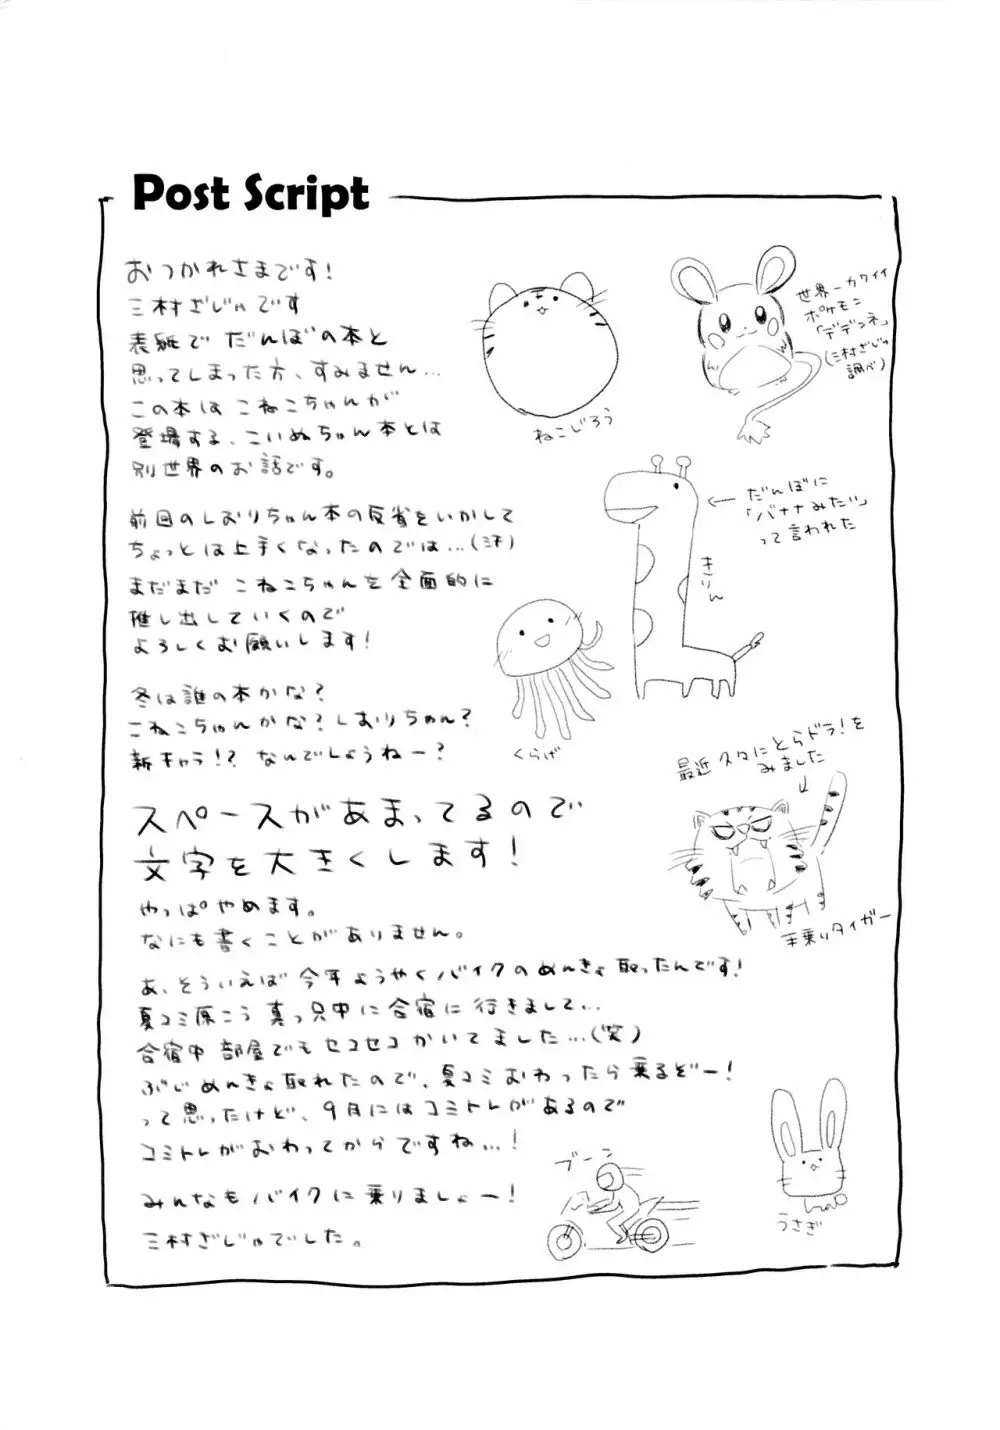 Post Script
おつかれさまです!
三村ざじゃです
表紙で だんぼの本と
思ってしまった方、すみません…
この本は こねこちゃんが
登場する、こいぬちゃん本とは
別世界のお話です。
前回のしおりちゃん本の反省をいかして
ちょっとは上手くなったのでは…(汗)
まだまだ こねこちゃんを全面的に
推し出していくので
よろしくお願いします!
冬は誰の本かな?
こねこちゃんかな?しおりちゃん?
新キャラ!? なんでしょうねー?
スペースがあまってるので
文字を大きくします!
やっぱやめます。
なにも書くことがありません。
あ、そういえば 今年ようやくバイクのめんきょ取ったんです!
夏コミ原こう真っ只中に合宿に行きまして…
合宿中 部屋でもセコセコかいてました…(笑)
ぶじめんきょ取れたので、夏コミおわったら乗るぞー!
って思ったけど、9月にはコミトレがあるので
コミトレがおわってからですね…!
みんなもバイクに乗りましょー!
三村ざじゃでした。
ねこじろう
世界一カワイイ
ポケモン
「デデンネ」
(三村ざじゃ
調べ)
← だんぼに
「バナナみたい」
って言われた
きりん
くらげ
最近久々にとらドラ!を
みました
↓
手乗りタイガー
ブーン
うさぎ